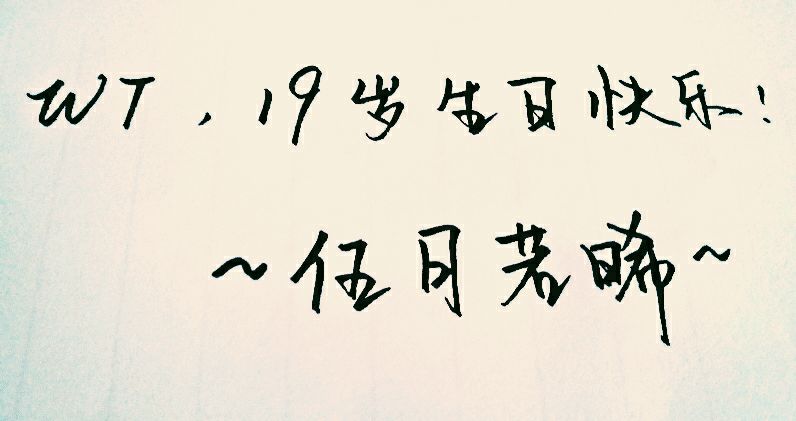 WT，19岁生日快乐！
~伍月若晞~